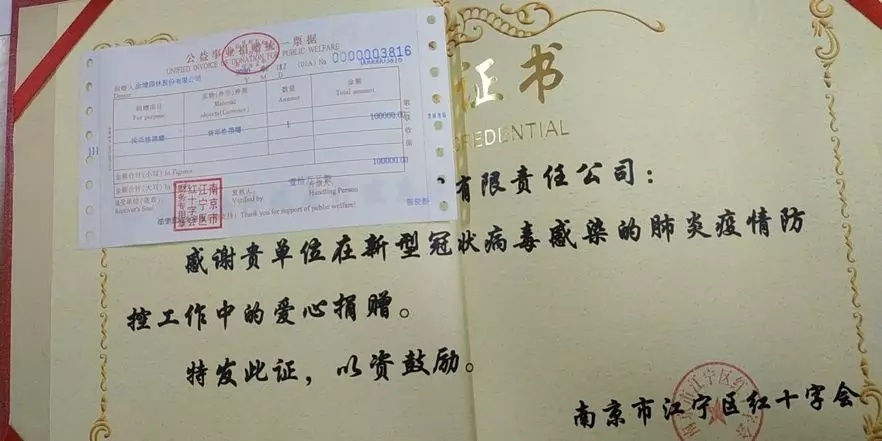 公益事业捐赠统一票据
UNIFIED INVOICE OF DONATION FOR PUBLIC WELFARE
(01A) № 0000003816
0000003816
捐赠人
Donor
园林股份有限公司
Y M D
捐赠项目 实物(外币)种类 数量 金额
For purpose Material objects(Currency) Amount Total amount
货币捐赠 1 100000.00
100000.00
金额合计(小写) In Figures
金额合计(大写)
接受单位(盖章): 复核人: 开票人:
Receiver's Seal Verified by Handling Person
Thank you for support of public welfare!
南京市
江宁区
红十字会
财务专用章
证书
CREDENTIAL
有限责任公司:
感谢贵单位在新型冠状病毒感染的肺炎疫情防
控工作中的爱心捐赠。
特发此证,以资鼓励。
南京市江宁区红十字会